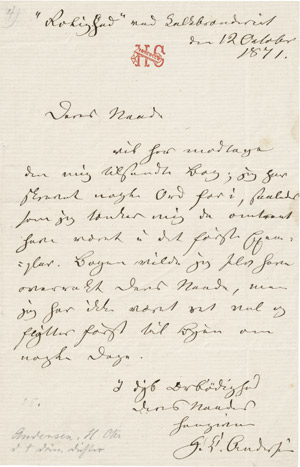 "Rolighed" ved Kalkbrænderiet
den 12 October
1871.
HS
Deres Naade
vil her modtage
den mig tilsendte Bog; jeg har
skrevet nogle Ord for i, saaledes
som jeg tænker mig de omtrent
have været i det første Exem-
plar. Bogen vilde jeg selv have
overrakt Deres Naade, men
jeg har ikke været ret vel og
flytter først til Byen om
nogle Dage.
I dyb Ærbødighed
Deres Naades
hengivne
H. C. Andersen
Andersen, H. Chr.
d. dän. Dichter